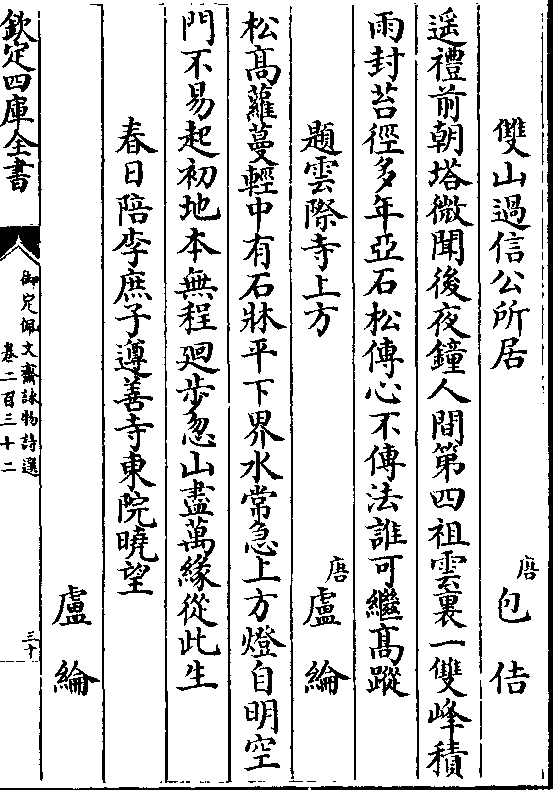 雙山過信公所居
唐 包佶
遥禮前朝塔微聞後夜鐘人間第四祖雲裏一雙峰積
雨封苔徑多年亞石松傳心不傳法誰可繼高蹤
題雲際寺上方
唐 盧綸
松高蘿蔓輕中有石牀平下界水常急上方燈自明空
門不易起初地本無程廻步忽山盡萬緣從此生
春日陪李庶子遵善寺東院曉望
盧綸
欽定四庫全書
御定佩文齋詠物詩選
卷二百三十二
三十